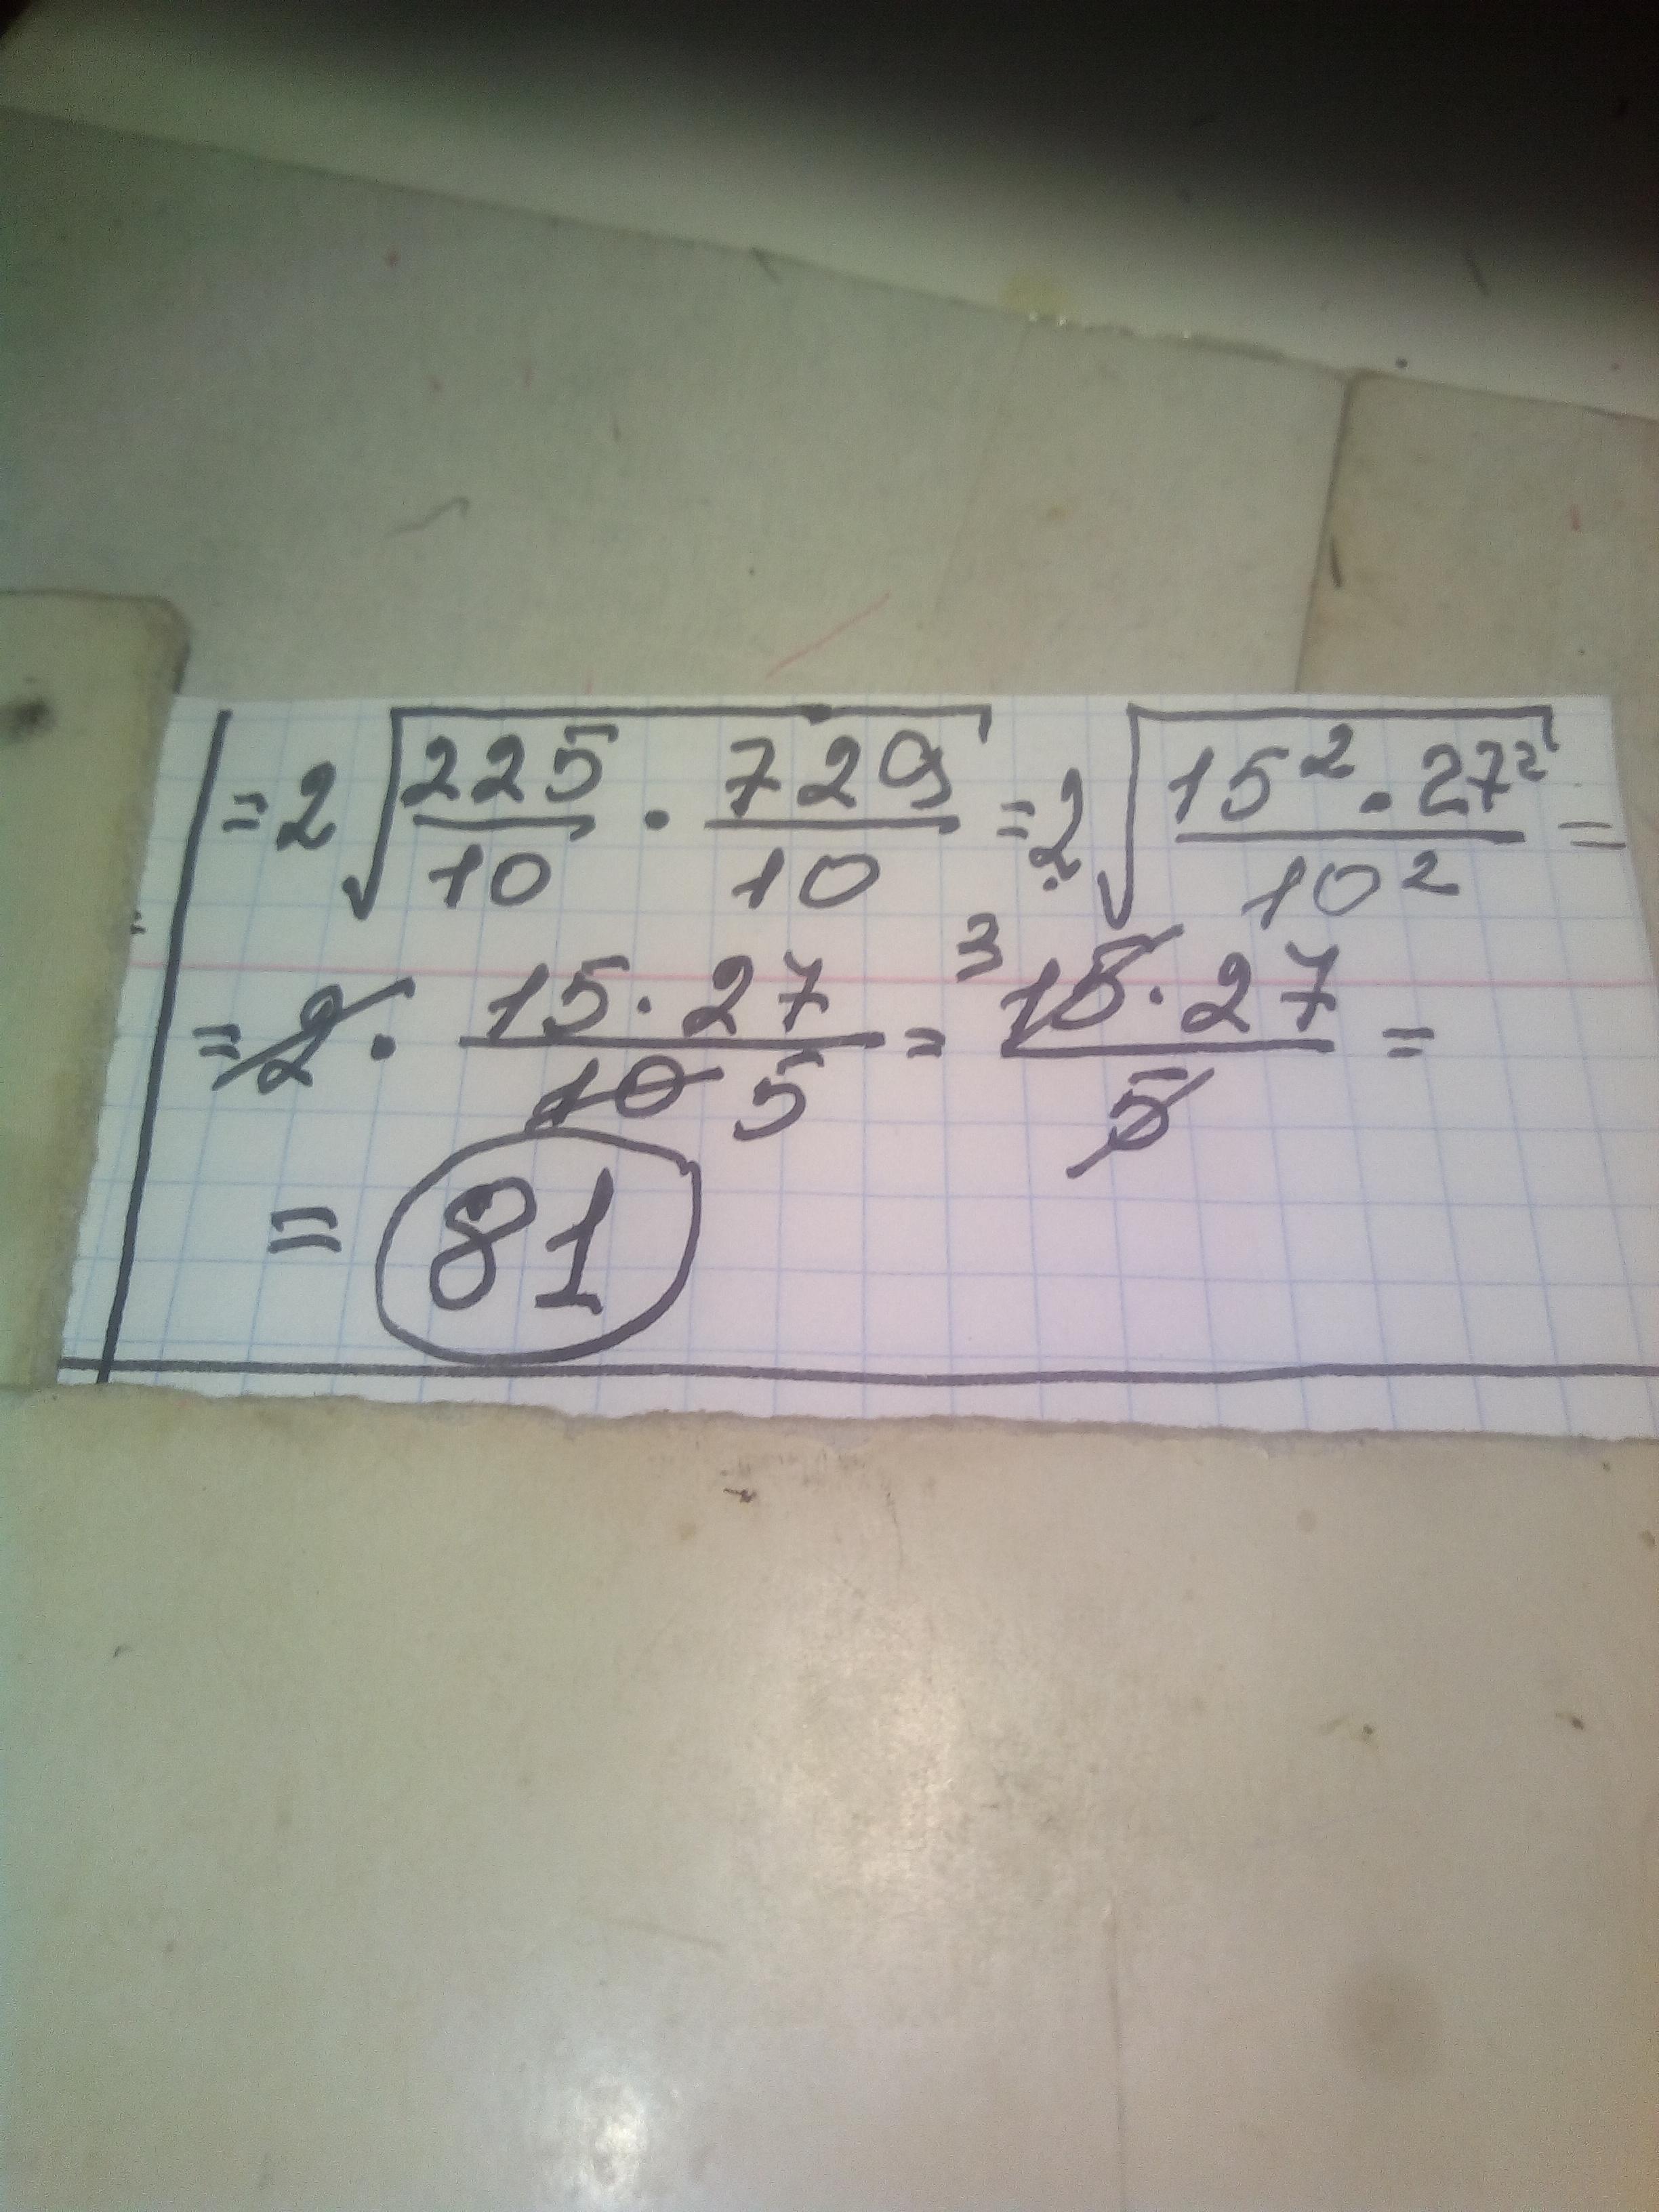 = 2√(225/10 · 729/10) = 2√(15² · 27²/10²) =
= 2 · 15 · 27/10 5 = 3 15 · 27/5 =
= 81